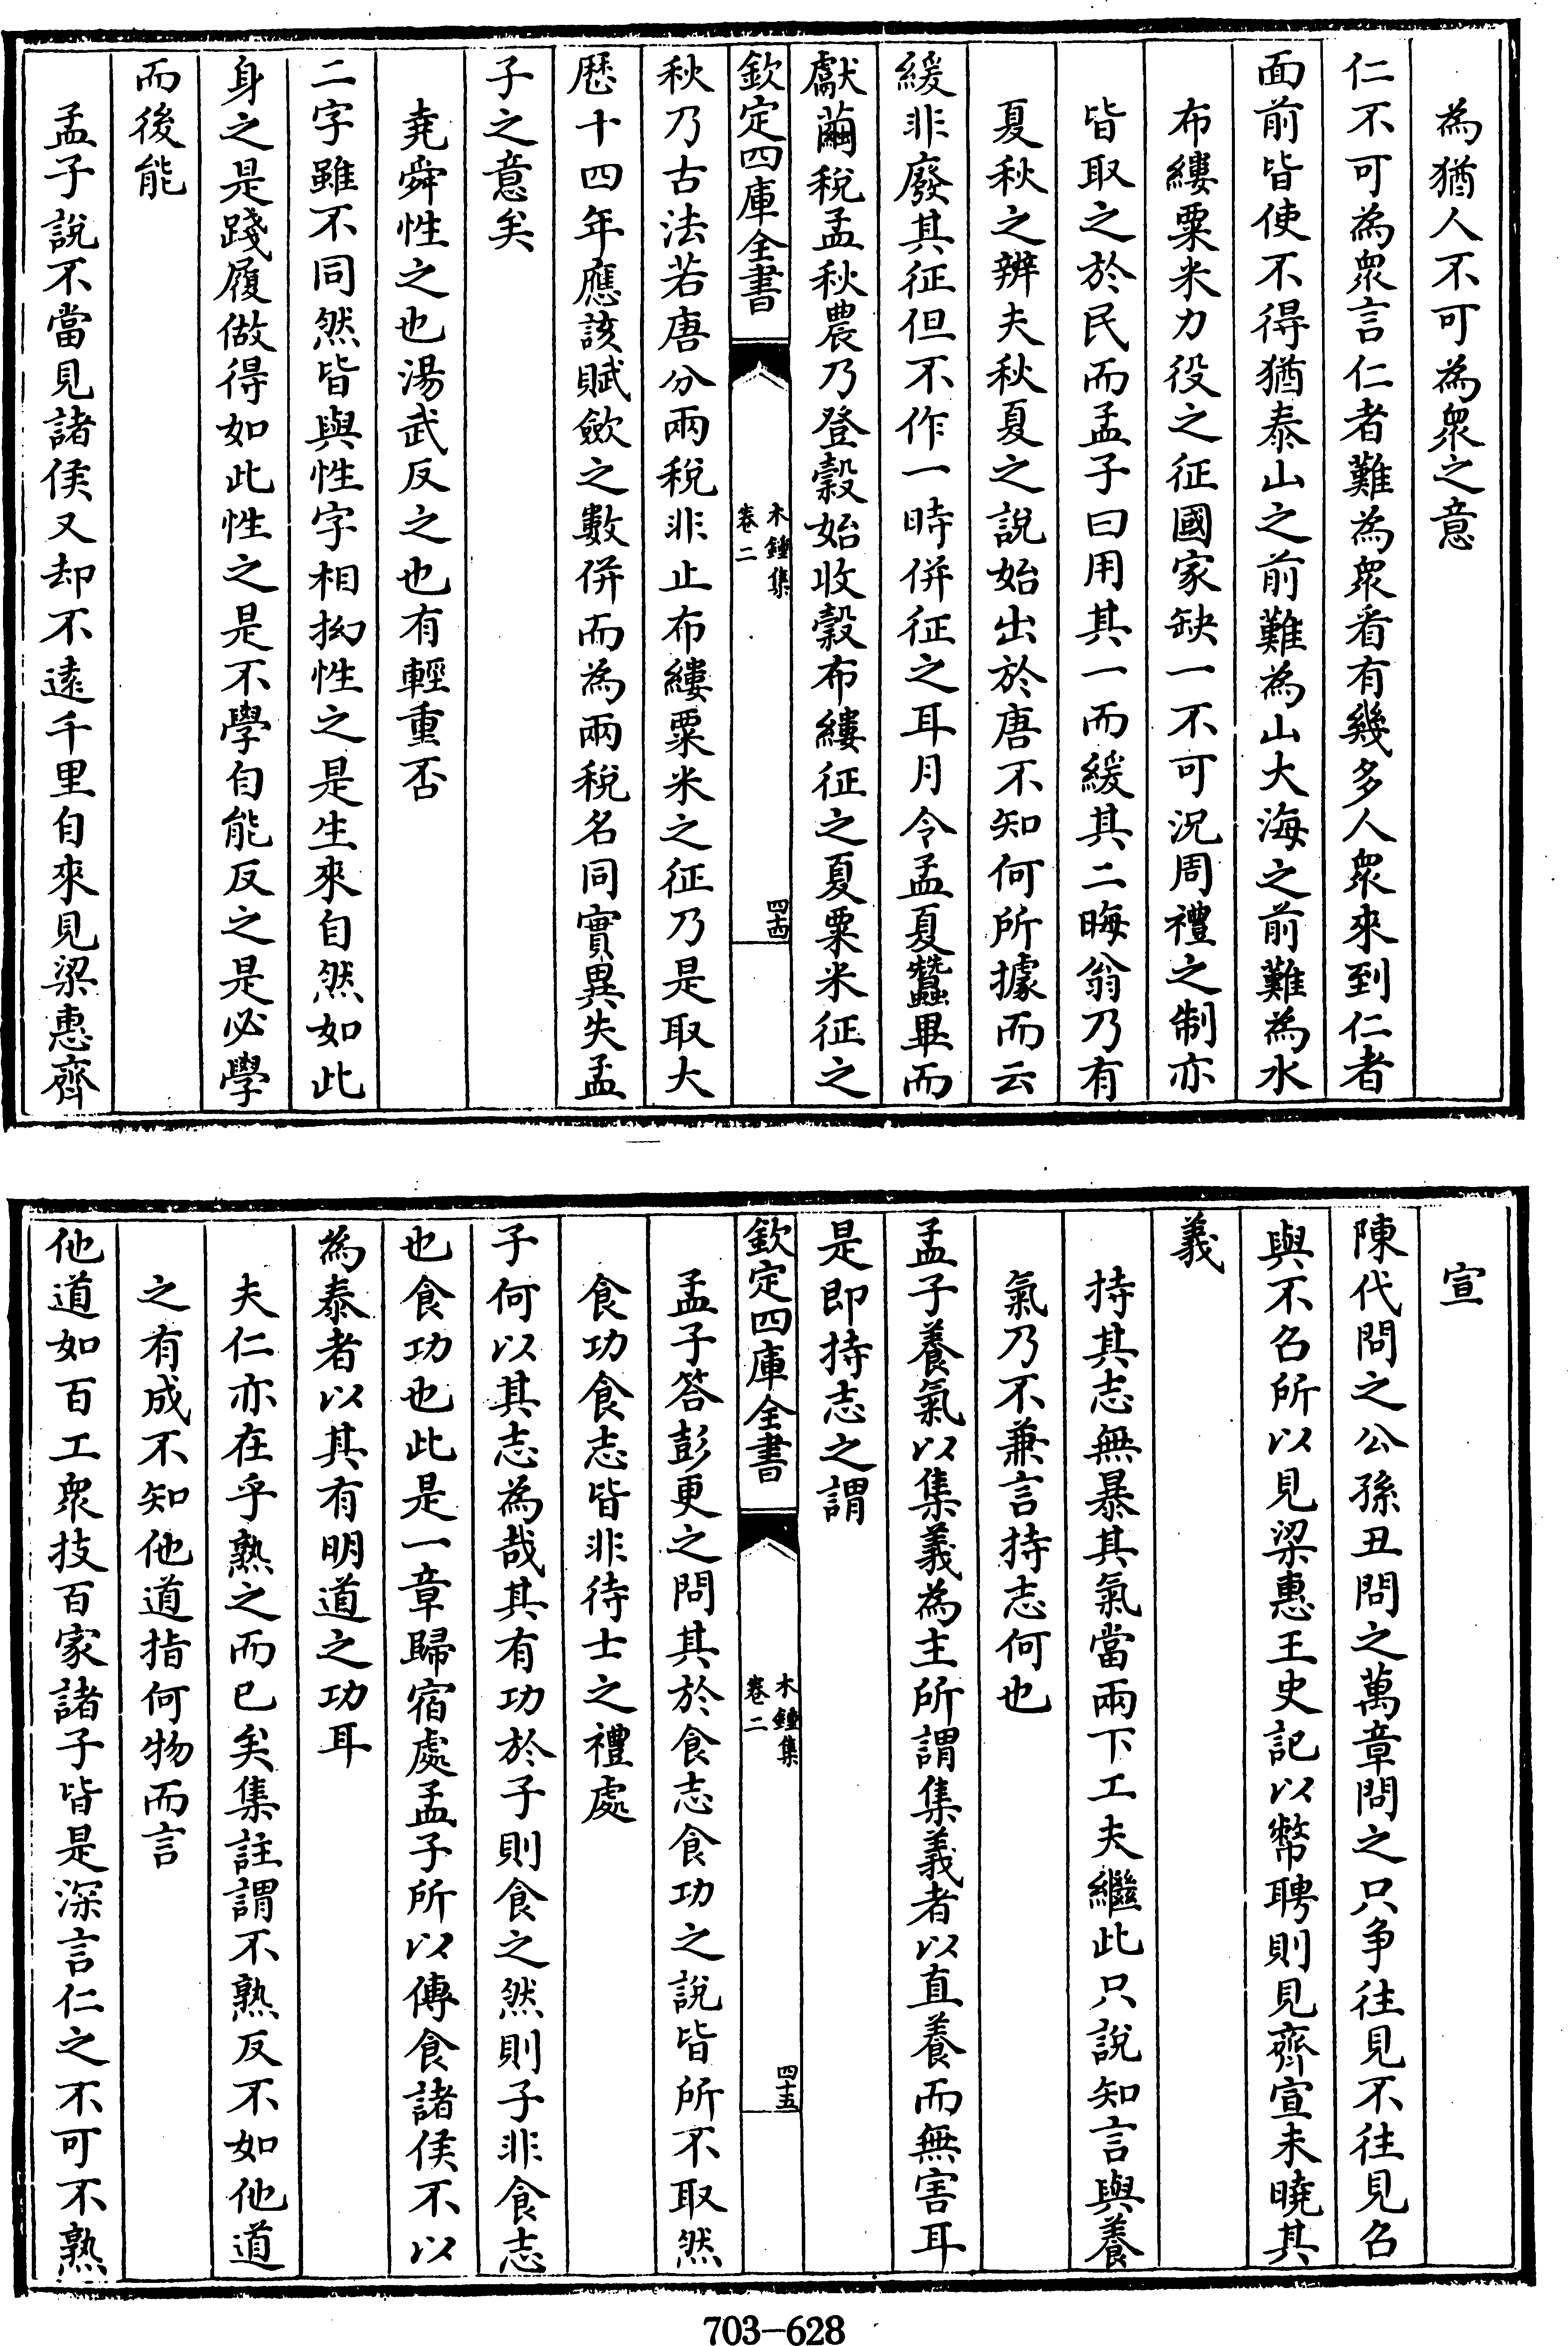 為猶人不可為衆之意
仁不可為衆言仁者難為衆看有幾多人衆來到仁者
面前皆使不得猶泰山之前難為山大海之前難為水
布縷粟米力役之征國家缺一不可況周禮之制亦
皆取之於民而孟子曰用其一而緩其二晦翁乃有
夏秋之辨夫秋夏之說始出於唐不知何所據而云
緩非廢其征但不作一時併征之耳月令孟夏蠶畢而
獻繭稅孟秋農乃登穀始收穀布縷征之夏粟米征之
欽定四庫全書
木鍾集
卷二
四十四
秋乃古法若唐分兩稅非止布縷粟米之征乃是取大
歷十四年應該賦斂之數併而為兩稅名同實異失孟
子之意矣
堯舜性之也湯武反之也有輕重否
二字雖不同然皆與性字相拗性之是生來自然如此
身之是踐履做得如此性之是不學自能反之是必學
而後能
孟子說不當見諸侯又却不遠千里自來見梁惠齊
宣
陳代問之公孫丑問之萬章問之只爭往見不往見名
與不名所以見梁惠王史記以幣聘則見齊宣未曉其
義
持其志無暴其氣當兩下工夫繼此只說知言與養
氣乃不兼言持志何也
孟子養氣以集義為主所謂集義者以直養而無害耳
是即持志之謂
欽定四庫全書
木鍾集
卷二
四十五
孟子答彭更之問其於食志食功之說皆所不取然
食功食志皆非待士之禮處
子何以其志為哉其有功於子則食之然則子非食志
也食功也此是一章歸宿處孟子所以傳食諸侯不以
為泰者以其有明道之功耳
夫仁亦在乎熟之而已矣集註謂不熟反不如他道
之有成不知他道指何物而言
他道如百工衆技百家諸子皆是深言仁之不可不熟
703-628